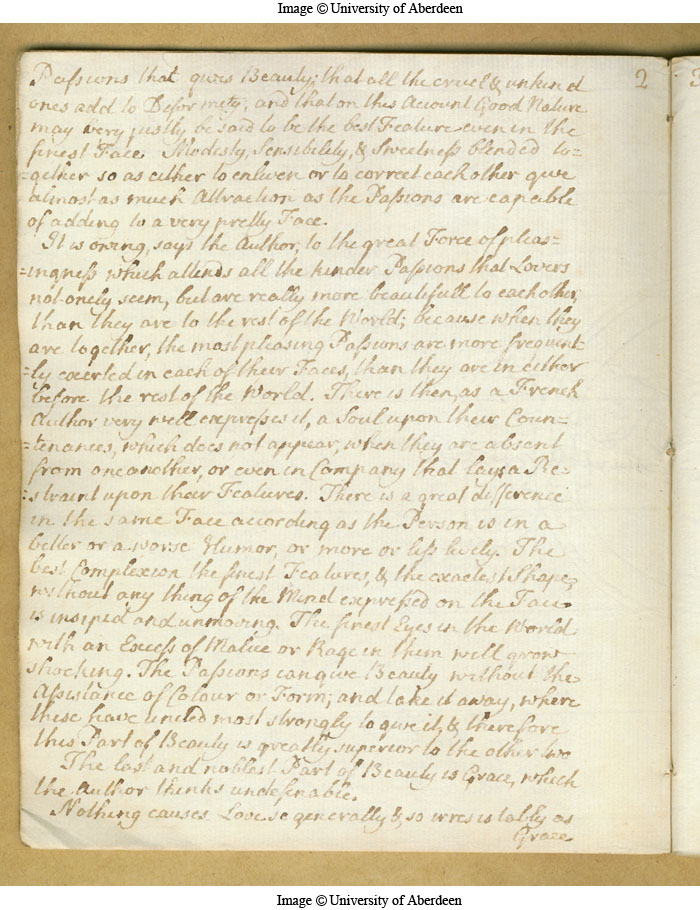 Image © University of Aberdeen
2
Passions that gives Beauty; that all the cruel & unkind
ones add to Deformity, and that on this Account Good Nature
may very justly be said to be the best Feature even in the
finest Face. Modesty, Sensibility, & Sweetness blended to=
=gether so as either to enliven or to correct each other give
almost as much Attraction as the Passions are capable
of adding to a very pretty Face.
It is owing, says the Author, to the great Force of pleas=
=ingness which attends all the kinder Passions that Lovers
not onely seem, but are really more beautifull to each other,
than they are to the rest of the World; because when they
are together, the most pleasing Passions are more frequent
=ly exerted in each of their Faces, than they are in either
before the rest of the World. There is then, as a French
Author very well expresses it, a Soul upon their Coun=
=tenances, which does not appear, when they are absent
from one another, or even in Company that lays a Re=
=straint upon their Features. There is a great difference
in the same Face according as the Person is in a
better or a worse Humor, or more or less lively. The
best Complexion the finest Features, & the exactest Shape,
without any thing of the Mind expressed on the Face
is insipid and unmoving. The finest Eyes in the World
with an Excess of Malice or Rage in them will grow
shocking. The Passions can give Beauty without the
Assistance of Colour or Form; and take it away, where
these have united most strongly to give it, & therefore
this Part of Beauty is greatly superior to the other two
The last and noblest Part of Beauty is Grace, which
the Author thinks undefinable.
Nothing causes Love so generally & so irresistably as
Grace
Image © University of Aberdeen